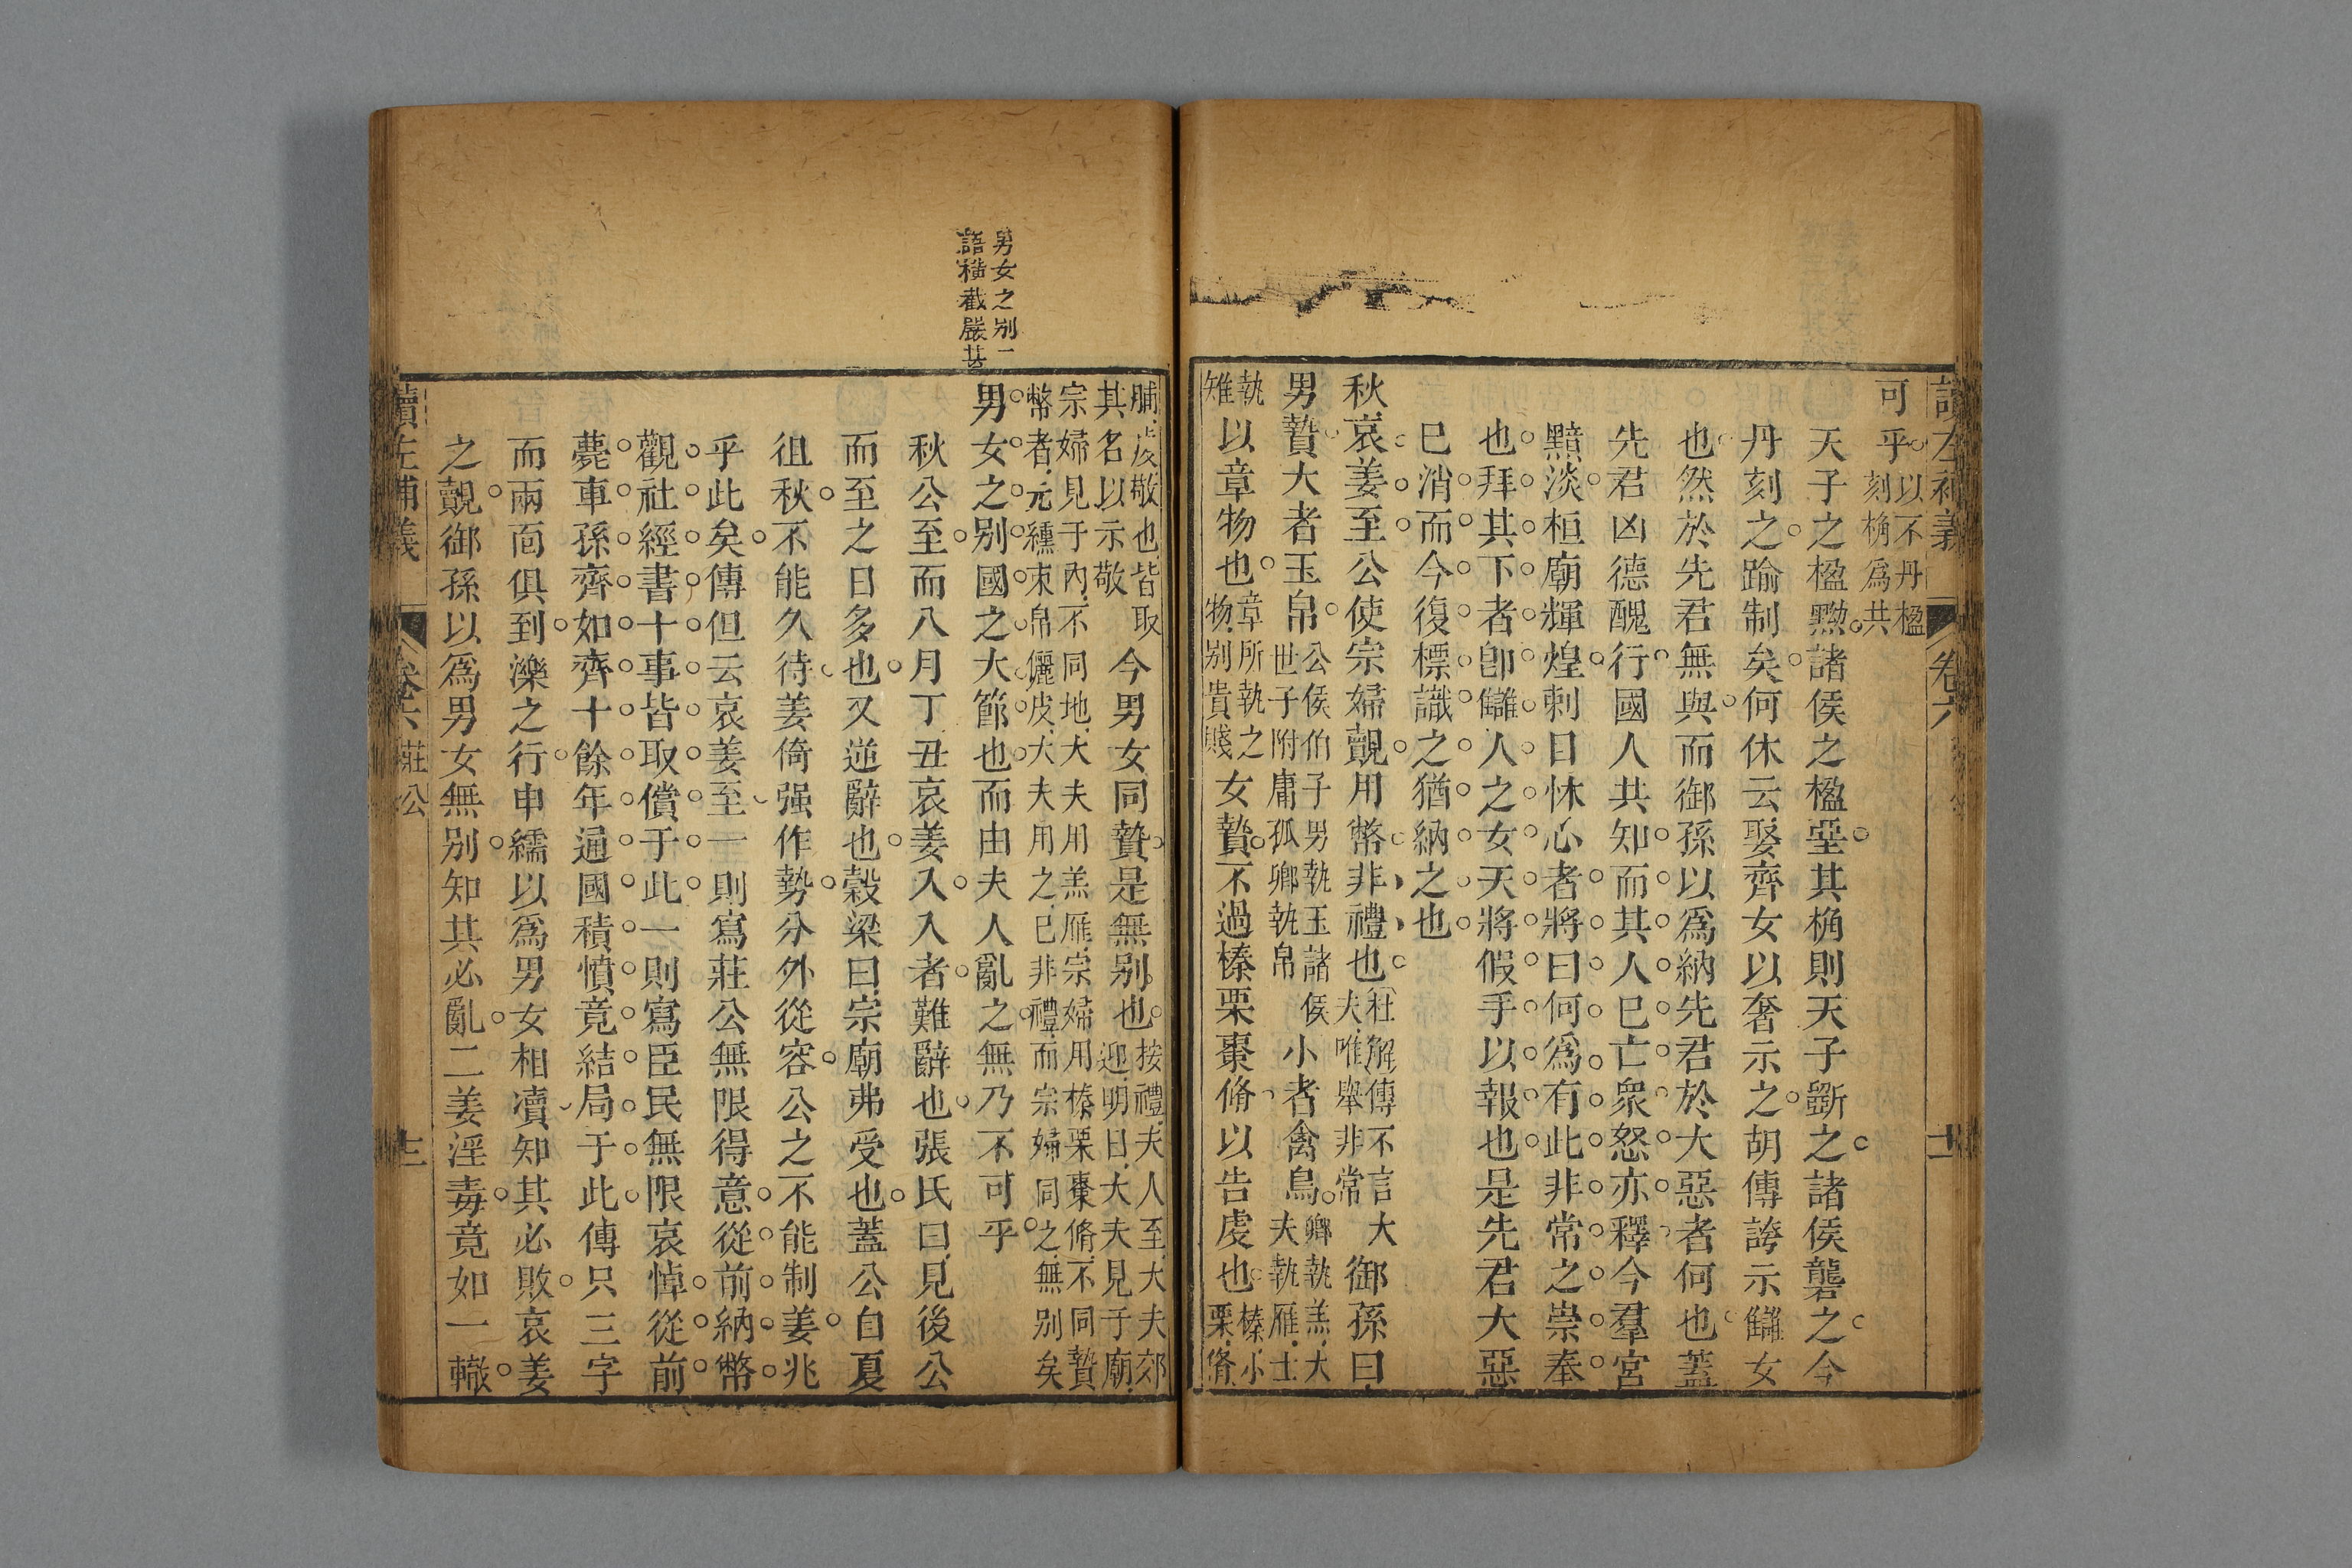 讀左補義 卷六
可乎以不丹楹刻桷爲共
天子之楹黝諸侯之楹堊其桷則天子斲之諸侯礱之今
丹刻之踰制矣何休云娶齊女以奢示之胡傳誇示讎女
也然於先君無與而御孫以爲納先君於大惡者何也蓋
先君凶德醜行國人共知而其人已亡衆怒亦釋今羣宮
黯淡桓廟輝煌刺目怵心者將曰何爲有此非常之崇奉
也拜其下者卽讎人之女天將假手以報也是先君大惡
已消而今復標識之猶納之也
秋哀姜至公使宗婦覿用幣非禮也杜解傳不言大夫唯舉非常御孫曰
男贄大者玉帛公侯伯子男執玉諸侯世子附庸孤卿執帛小者禽鳥卿執羔大夫執雁士
執雉以章物也章所執之物別貴賤女贄不過榛栗棗脩以告虔也榛小栗脩
脯虔敬也皆取其名以示敬今男女同贄是無別也按禮夫人至大夫郊迎明日大夫見于廟
宗婦見于內不同地大夫用羔雁宗婦用榛栗棗脩不同贄
幣者元纁束帛儷皮大夫用之已非禮而宗婦同之無別矣
男女之別國之大節也而由夫人亂之無乃不可乎
男女之別二
語橫截嚴甚
秋公至而八月丁丑哀姜入入者難辭也張氏曰見後公
而至之日多也又逆辭也穀梁曰宗廟弗受也蓋公自夏
徂秋不能久待姜倚强作勢分外從容公之不能制姜兆
乎此矣傳但云哀姜至一則寫莊公無限得意從前納幣
觀社經書十事皆取償于此一則寫臣民無限哀悼從前
薨車孫齊如齊十餘年通國積憤竟結局于此傳只三字
而兩面俱到濼之行申繻以爲男女相凟知其必敗哀姜
之覿御孫以爲男女無別知其必亂二姜淫毒竟如一轍
讀左補義 卷六 莊公